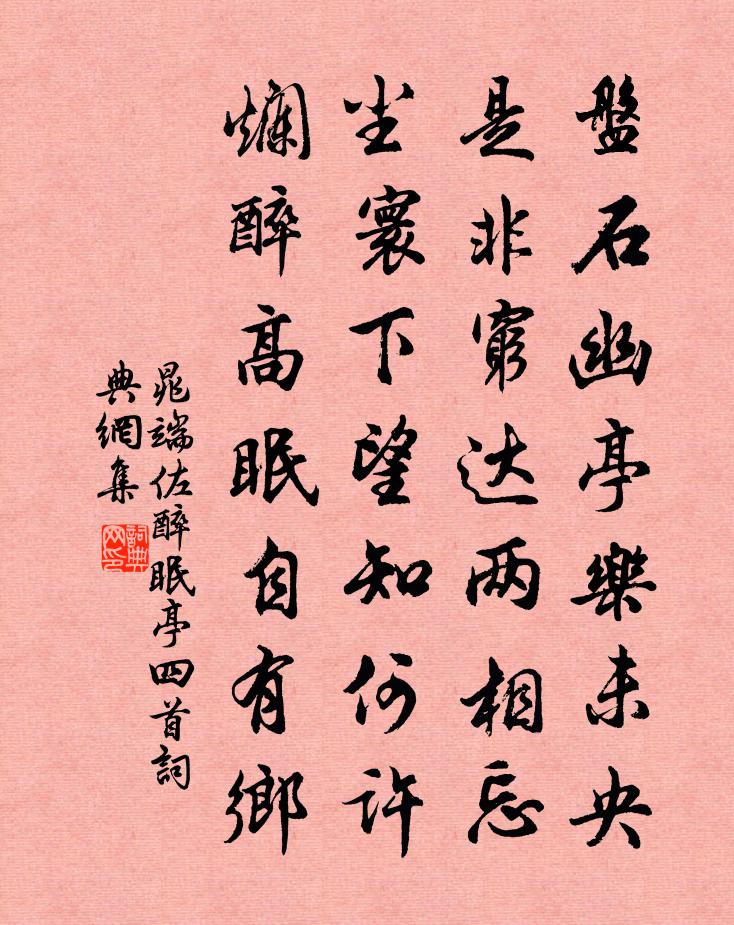 盤石幽亭樂未央
是非窮达两相忘
尘寰下望知何许
爛醉高眠自有鄉
晁端佐醉眠亭四首詞
典網集
詞典
网印